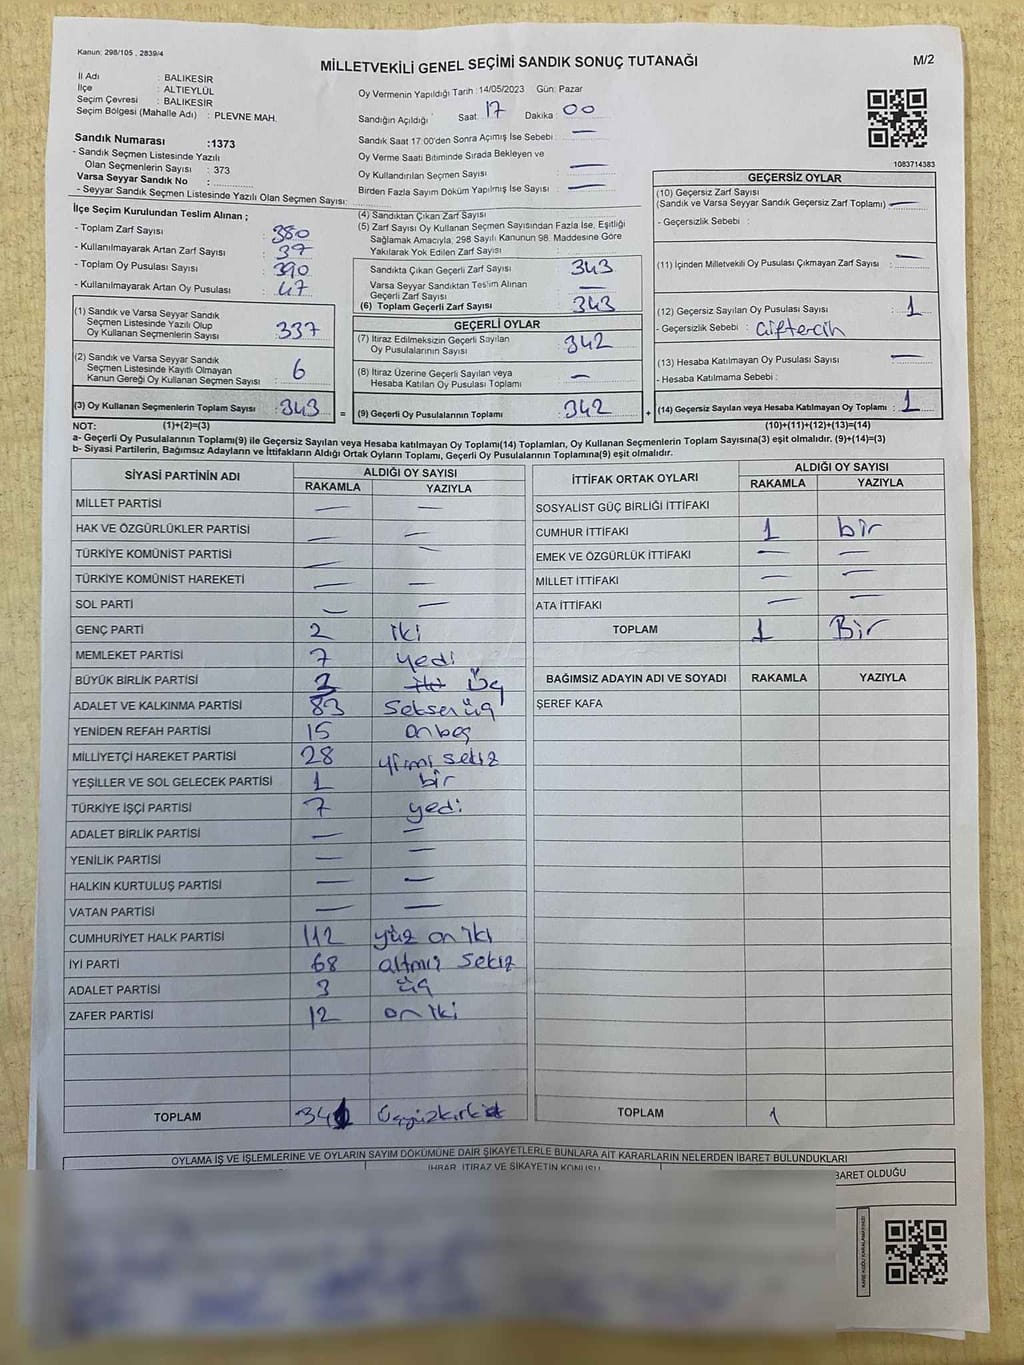 Kanun: 298/105 , 2839/4
MİLLETVEKİLİ GENEL SEÇİMİ SANDIK SONUÇ TUTANAĞI
M/2
İl Adı : BALIKESİR
İlçe : ALTIEYLÜL
Seçim Çevresi : BALIKESİR
Seçim Bölgesi (Mahalle Adı) : PLEVNE MAH.
Sandık Numarası :1373
- Sandık Seçmen Listesinde Yazılı
Olan Seçmenlerin Sayısı : 373
Varsa Seyyar Sandık No :
- Seyyar Sandık Seçmen Listesinde Yazılı Olan Seçmen Sayısı:
Oy Vermenin Yapıldığı Tarih : 14/05/2023 Gün: Pazar
Sandığın Açıldığı Saat: 17 Dakika : 00
Sandık Saat 17:00'den Sonra Açımış İse Sebebi : —
Oy Verme Saati Bitiminde Sırada Bekleyen ve
Oy Kullandırılan Seçmen Sayısı : —
Birden Fazla Sayım Döküm Yapılmış İse Sayısı : —
1083714383
İlçe Seçim Kurulundan Teslim Alınan ;
- Toplam Zarf Sayısı : 380
- Kullanılmayarak Artan Zarf Sayısı : 37
- Toplam Oy Pusulası Sayısı : 390
- Kullanılmayarak Artan Oy Pusulası : 47
(1) Sandık ve Varsa Seyyar Sandık
Seçmen Listesinde Yazılı Olup
Oy Kullanan Seçmenlerin Sayısı : 337
(2) Sandık ve Varsa Seyyar Sandık
Seçmen Listesinde Kayıtlı Olmayan
Kanun Gereği Oy Kullanan Seçmen Sayısı : 6
(3) Oy Kullanan Seçmenlerin Toplam Sayısı : 343 =
(4) Sandıktan Çıkan Zarf Sayısı
(5) Zarf Sayısı Oy Kullanan Seçmen Sayısından Fazla İse, Eşitliği
Sağlamak Amacıyla, 298 Sayılı Kanunun 98. Maddesine Göre
Yakılarak Yok Edilen Zarf Sayısı
Sandıkta Çıkan Geçerli Zarf Sayısı 343
Varsa Seyyar Sandıktan Teslim Alınan
Geçerli Zarf Sayısı —
(6) Toplam Geçerli Zarf Sayısı : 343
GEÇERLİ OYLAR
(7) İtiraz Edilmeksizin Geçerli Sayılan
Oy Pusulalarının Sayısı : 342
(8) İtiraz Üzerine Geçerli Sayılan veya
Hesaba Katılan Oy Pusulası Toplamı : —
(9) Geçerli Oy Pusulalarının Toplamı : 342 +
GEÇERSİZ OYLAR
(10) Geçersiz Zarf Sayısı
(Sandık ve Varsa Seyyar Sandık Geçersiz Zarf Toplamı) —
- Geçersizlik Sebebi :
(11) İçinden Milletvekili Oy Pusulası Çıkmayan Zarf Sayısı : —
(12) Geçersiz Sayılan Oy Pusulası Sayısı : 1
- Geçersizlik Sebebi : Çiftercih
(13) Hesaba Katılmayan Oy Pusulası Sayısı —
- Hesaba Katılmama Sebebi :
(14) Geçersiz Sayılan veya Hesaba Katılmayan Oy Toplamı : 1
NOT: (1)+(2)=(3) (10)+(11)+(12)+(13)=(14)
a- Geçerli Oy Pusulalarının Toplamı(9) ile Geçersiz Sayılan veya Hesaba katılmayan Oy Toplamı(14) Toplamları, Oy Kullanan Seçmenlerin Toplam Sayısına(3) eşit olmalıdır. (9)+(14)=(3)
b- Siyasi Partilerin, Bağımsız Adayların ve İttifakların Aldığı Ortak Oyların Toplamı, Geçerli Oy Pusulalarının Toplamına(9) eşit olmalıdır.
SİYASİ PARTİNİN ADI ALDIĞI OY SAYISI
RAKAMLA YAZIYLA
MİLLET PARTİSİ — —
HAK VE ÖZGÜRLÜKLER PARTİSİ — —
TÜRKİYE KOMÜNİST PARTİSİ — —
TÜRKİYE KOMÜNİST HAREKETİ — —
SOL PARTİ — —
GENÇ PARTİ 2 iki
MEMLEKET PARTİSİ 7 yedi
BÜYÜK BİRLİK PARTİSİ 3 iki Üç
ADALET VE KALKINMA PARTİSİ 83 Seksen üç
YENİDEN REFAH PARTİSİ 15 onbeş
MİLLİYETÇİ HAREKET PARTİSİ 28 yirmi sekiz
YEŞİLLER VE SOL GELECEK PARTİSİ 1 bir
TÜRKİYE İŞÇİ PARTİSİ 7 yedi
ADALET BİRLİK PARTİSİ — —
YENİLİK PARTİSİ — —
HALKIN KURTULUŞ PARTİSİ — —
VATAN PARTİSİ — —
CUMHURİYET HALK PARTİSİ 112 yüz on iki
İYİ PARTİ 68 altmış sekiz
ADALET PARTİSİ 3 üç
ZAFER PARTİSİ 12 on iki
TOPLAM 341 Üçyüzkırk
İTTİFAK ORTAK OYLARI ALDIĞI OY SAYISI
RAKAMLA YAZIYLA
SOSYALİST GÜÇ BİRLİĞİ İTTİFAKI
CUMHUR İTTİFAKI 1 bir
EMEK VE ÖZGÜRLÜK İTTİFAKI — —
MİLLET İTTİFAKI — —
ATA İTTİFAKI — —
TOPLAM 1 Bir
BAĞIMSIZ ADAYIN ADI VE SOYADI RAKAMLA YAZIYLA
ŞEREF KAFA
TOPLAM 1
OYLAMA İŞ VE İŞLEMLERİNE VE OYLARIN SAYIM DÖKÜMÜNE DAİR ŞİKAYETLERLE BUNLARA AİT KARARLARIN NELERDEN İBARET BULUNDUKLARI
İHBAR, İTİRAZ VE ŞİKAYETİN KONUSU
BARET OLDUĞU